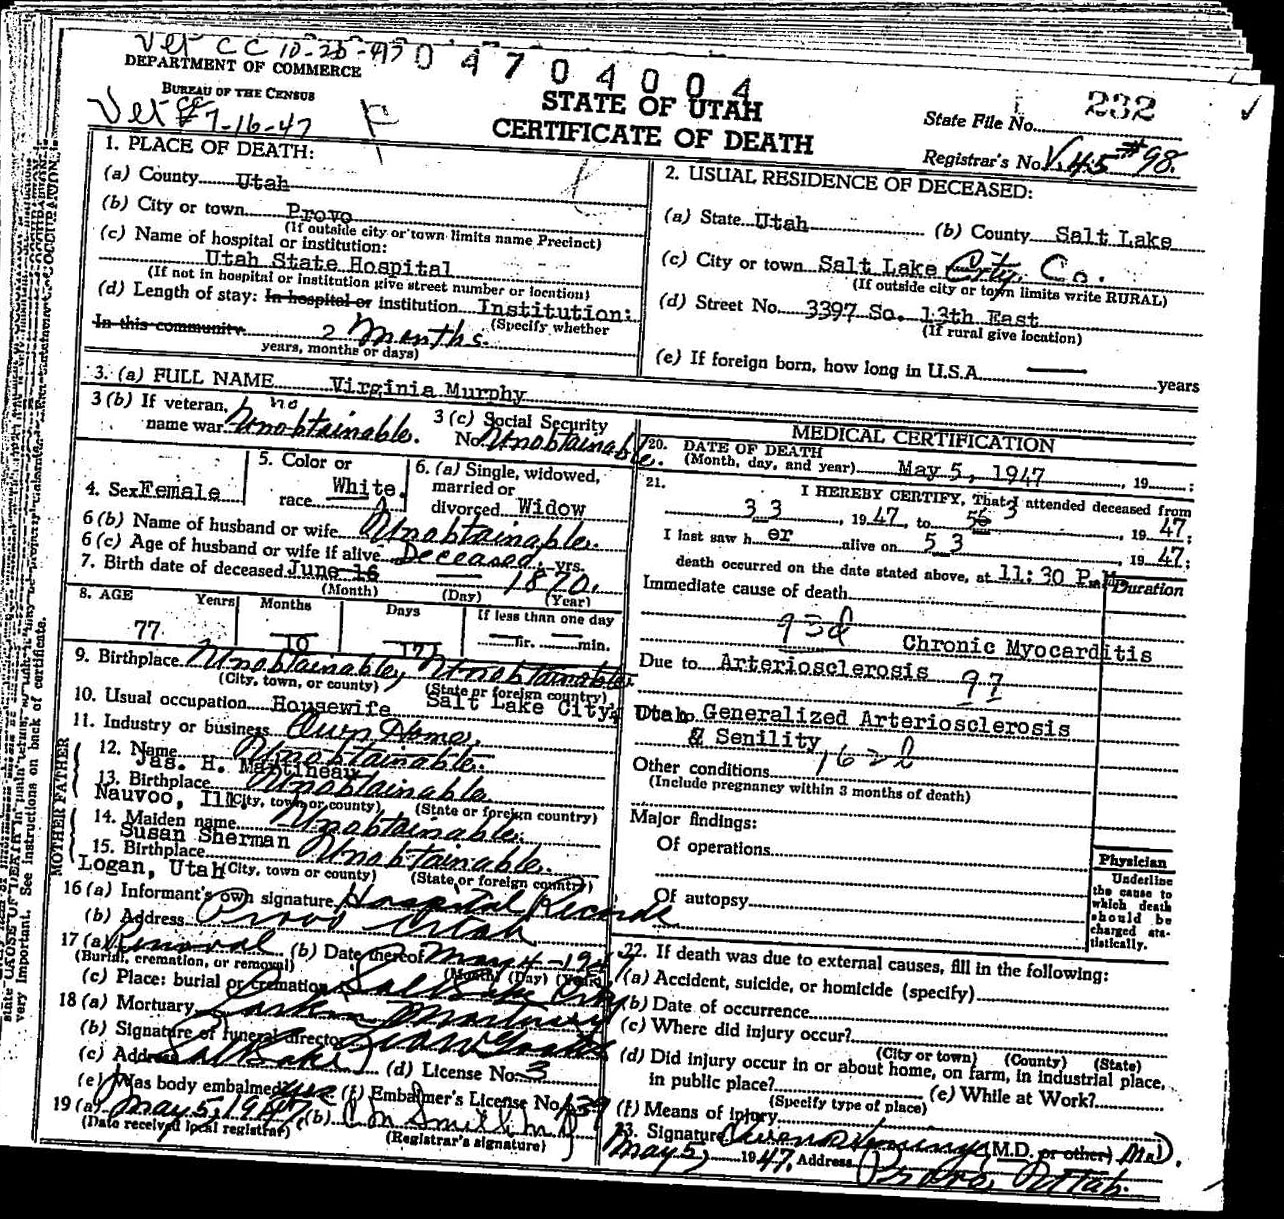 Vet CC 10-20-47
0 4 7 0 4 0 0 4
DEPARTMENT OF COMMERCE
BUREAU OF THE CENSUS
Vet CC 7-16-47
F
STATE OF UTAH
CERTIFICATE OF DEATH
232
State File No.
Registrar's No. V. 45 #98.
1. PLACE OF DEATH:
(a) County Utah
(b) City or town Provo
(If outside city or town limits name Precinct)
(c) Name of hospital or institution:
Utah State Hospital
(If not in hospital or institution give street number or location)
(d) Length of stay: In hospital or institution Institution:
(Specify whether
In this community 2 Months.
years, months or days)
2. USUAL RESIDENCE OF DECEASED:
(a) State Utah (b) County Salt Lake
(c) City or town Salt Lake City Co.
(If outside city or town limits write RURAL)
(d) Street No. 3397 So. 13th East
(If rural give location)
(e) If foreign born, how long in U.S.A. — years
3. (a) FULL NAME Virginia Murphy
3 (b) If veteran, no
name war Unobtainable.
3 (c) Social Security
No. Unobtainable.
4. Sex Female
5. Color or
race White.
6. (a) Single, widowed,
married or
divorced Widow
6 (b) Name of husband or wife Unobtainable.
6 (c) Age of husband or wife if alive Deceased. yrs.
7. Birth date of deceased June 16 — 1870.
(Month) (Day) (Year)
8. AGE Years Months Days If less than one day
77 10 17 hr. min.
9. Birthplace Unobtainable, Unobtainable
(City, town, or county) (State or foreign country)
Salt Lake City,
Utah
10. Usual occupation Housewife
11. Industry or business Own Home.
FATHER
12. Name Unobtainable.
Jas. H. Martineau
13. Birthplace Unobtainable
Nauvoo, Ill (City, town or county) (State or foreign country)
MOTHER
14. Maiden name Unobtainable.
Susan Sherman
15. Birthplace Unobtainable.
Logan, Utah (City, town or county) (State or foreign country)
16 (a) Informant's own signature Hospital Records
(b) Address Provo Utah
17 (a) Removal (b) Date thereof May 4-19
(Burial, cremation, or removal) (Month) (Day) (Year)
(c) Place: burial or cremation Salt Lake City
18 (a) Mortuary Larkin Mortuary
(b) Signature of funeral director
(c) Address Salt Lake (d) License No. 3
(e) Was body embalmed yes (f) Embalmer's License No. 139
19 (a) May 5, 1947 (b) C M Smith MD
(Date received local registrar) (Registrar's signature)
MEDICAL CERTIFICATION
20. DATE OF DEATH
(Month, day, and year) May 5, 1947, 19 ;
21. I HEREBY CERTIFY, That I attended deceased from
3 3, 19 47, to 5 3, 19 47;
I last saw h er alive on 5 3, 19 47;
death occurred on the date stated above, at 11:30 P.M.
Duration
Immediate cause of death
93d Chronic Myocarditis
Due to Arteriosclerosis
97
Due to Generalized Arteriosclerosis
& Senility
Other conditions
(Include pregnancy within 3 months of death)
Major findings:
Of operations
Of autopsy
Physician
Underline
the cause to
which death
should be
charged sta-
tistically.
22. If death was due to external causes, fill in the following:
(a) Accident, suicide, or homicide (specify)
(b) Date of occurrence
(c) Where did injury occur?
(City or town) (County) (State)
(d) Did injury occur in or about home, on farm, in industrial place,
in public place?
(Specify type of place)
(e) While at Work?
(f) Means of injury
23. Signature (M.D. or other) M.D.
May 5, 1947. Address Provo Utah.